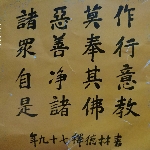 諸惡莫作
眾善奉行
自净其意
是諸佛教
年九十七釋德林書